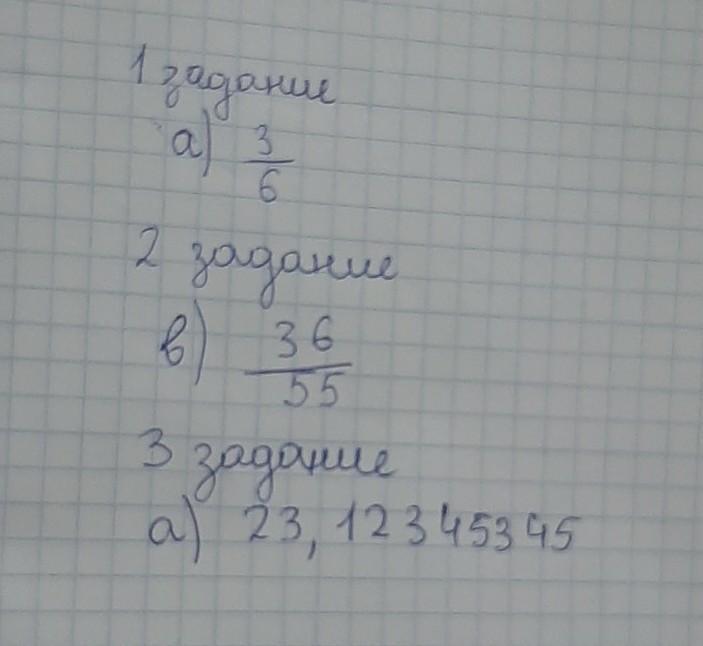 1 задание
а) 3/6
2 задание
в) 36/55
3 задание
а) 23,12345345